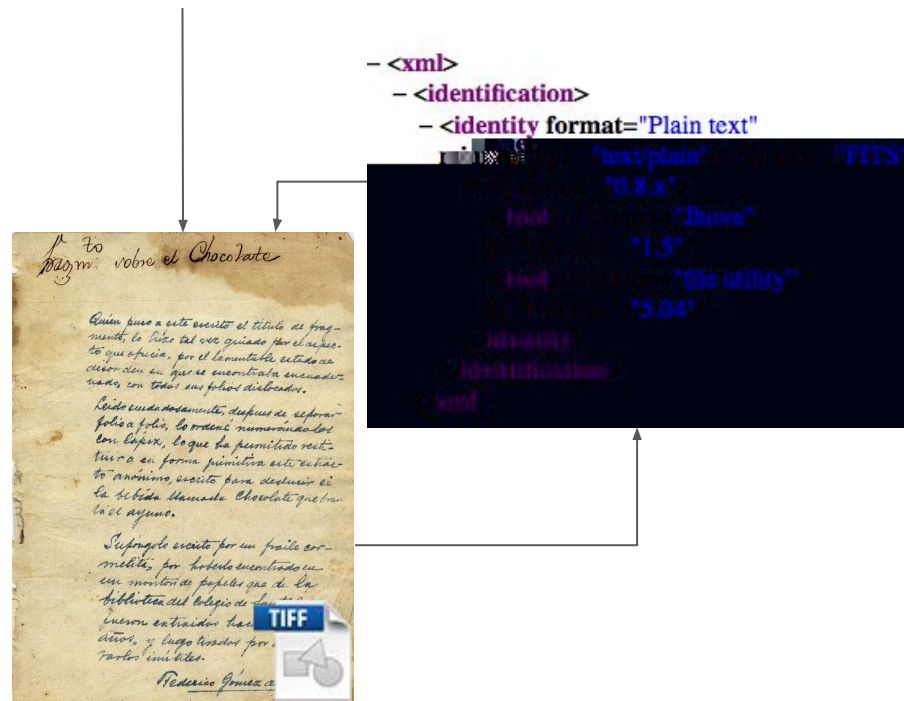 – <xml>
– <identification>
– <identity format="Plain text"
"text/plain" "FITS"
"0.8.x"
tool "Jhove"
"1.5"
tool "file utility"
"5.04"
identity
identification
xml
fragmto sobre el Chocolate
Quien puso a este escrito el título de frag-
mento, lo hizo tal vez guiado por el aspec-
to que ofrecia, por el lamentable estado de
desorden en que se encontraba encuader-
nado, con todos sus folios dislocados.
Leido cuidadosamente, despues de separar
folio a folio, lo ordené numerándolos
con lápiz, lo que ha permitido resti-
tuir a su forma primitiva este extrac-
to anónimo, escrito para deducir si
la bebida llamada Chocolate quebran
ta el ayuno.
Supongolo escrito por un fraile car-
melita, por haberlo encontrado en
un montón de papeles que de la
biblioteca del Colegio de
fueron extraidos
años, y luego tirados por
rarlos inútiles.
Federico Gómez
TIFF